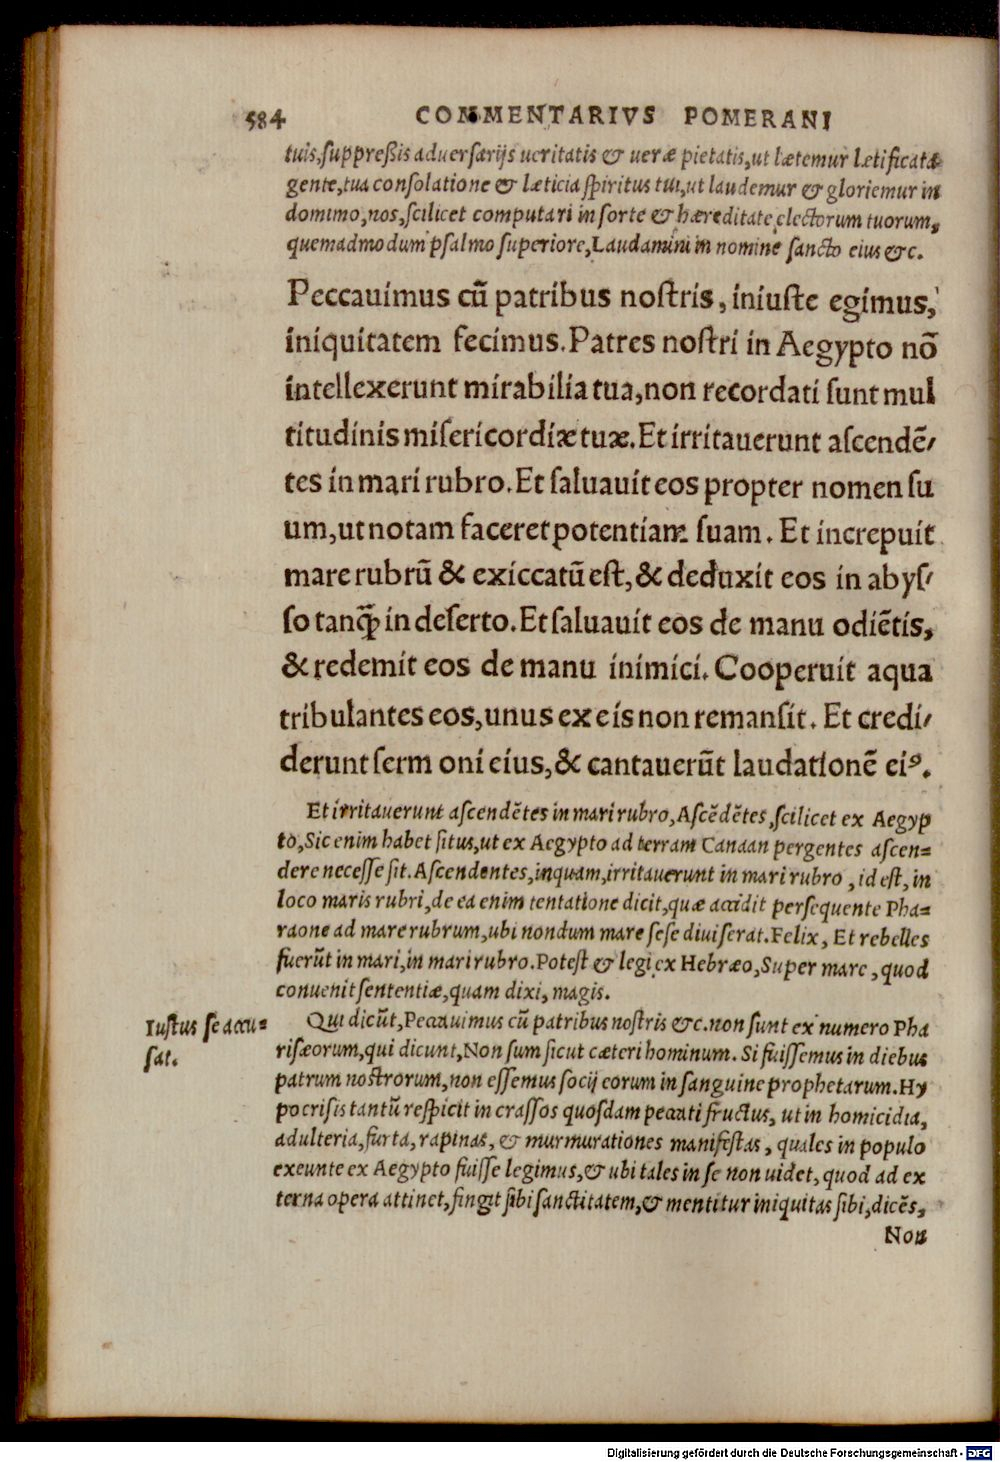 584 COMMENTARIVS POMERANI
tuis, suppreßis aduersarijs ueritatis & ueræ pietatis, ut lætemur lætificata
gente, tua consolatione & læticia spiritus tui, ut laudemur & gloriemur in
domino, nos, scilicet computari in sorte & hæreditate electorum tuorum,
quemadmodum psalmo superiore, Laudamini in nomine sancto eius &c.
Peccauimus cũ patribus nostris, iniuste egimus,
iniquitatem fecimus. Patres nostri in Aegypto nō
intellexerunt mirabilia tua, non recordati sunt mul
titudinis misericordiæ tuæ. Et irritauerunt ascendē/
tes in mari rubro. Et saluauit eos propter nomen su
um, ut notam faceret potentiam suam. Et increpuit
mare rubrũ & exiccatũ est, & deduxit eos in abys/
so tanq̃ in deserto. Et saluauit eos de manu odiẽtis,
& redemit eos de manu inimici. Cooperuit aqua
tribulantes eos, unus ex eis non remansit. Et credi/
derunt sermoni eius, & cantauerũt laudationẽ eiꝰ.
Et irritauerunt ascendẽtes in mari rubro, Ascẽdẽtes, scilicet ex Aegyp
to, Sic enim habet situs, ut ex Aegypto ad terram Canaan pergentes ascen=
dere necesse sit. Ascendentes, inquam, irritauerunt in mari rubro, id est, in
loco maris rubri, de ea enim tentatione dicit, quæ accidit persequente Pha=
raone ad mare rubrum, ubi nondum mare sese diuiserat. Felix, Et rebelles
fuerũt in mari, in mari rubro. Potest & legi ex Hebræo, Super mare, quod
conuenit sententiæ, quam dixi, magis.
Iustus se accu=
sat.
Qui dicũt, Peccauimus cũ patribus nostris &c. non sunt ex numero Pha
risæorum, qui dicunt, Non sum sicut cæteri hominum. Si fuissemus in diebus
patrum nostrorum, non essemus socij eorum in sanguine prophetarum. Hy
pocrisis tantũ respicit in crassos quosdam peccati fructus, ut in homicidia,
adulteria, furta, rapinas, & murmurationes manifestas, quales in populo
exeunte ex Aegypto fuisse legimus, & ubi tales in se non uidet, quod ad ex
terna opera attinet, fingit sibi sanctitatem, & mentitur iniquitas sibi, dicẽs,
Non
Digitalisierung gefördert durch die Deutsche Forschungsgemeinschaft - DFG